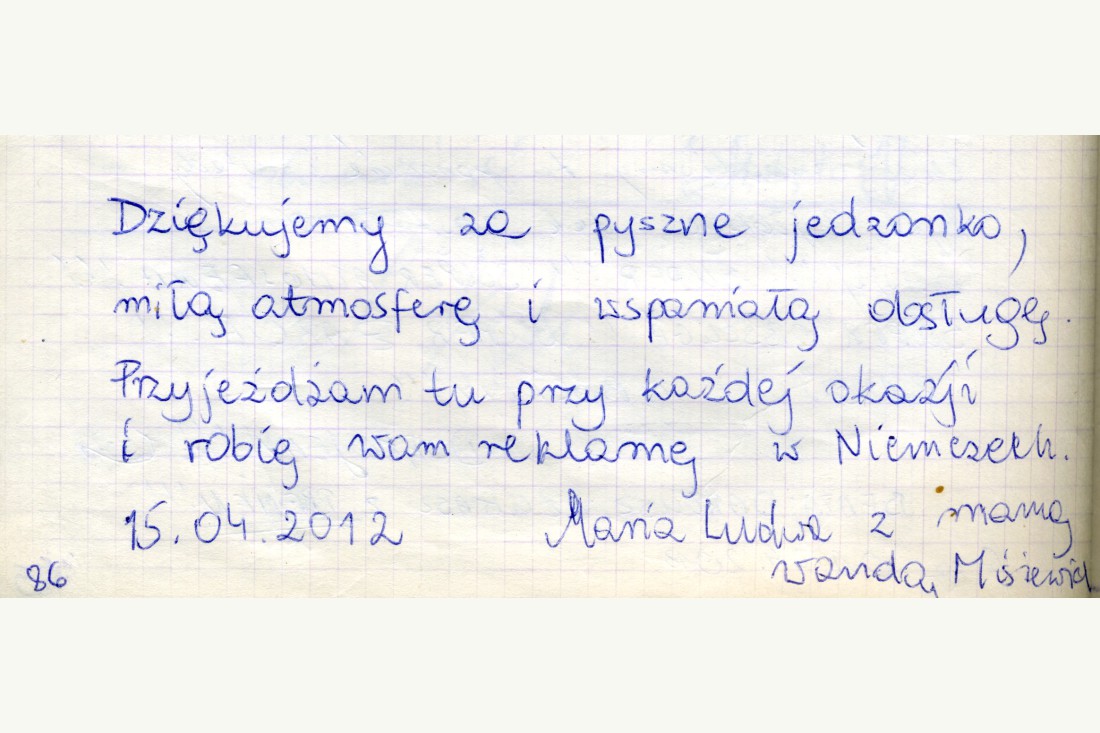 Dziękujemy za pyszne jedzonko,
miłą atmosferę i wspaniałą obsługę.
Przyjeżdżam tu przy każdej okazji
i robię wam reklamę w Niemczech.
15.04.2012 Maria z mamą
86 wandą